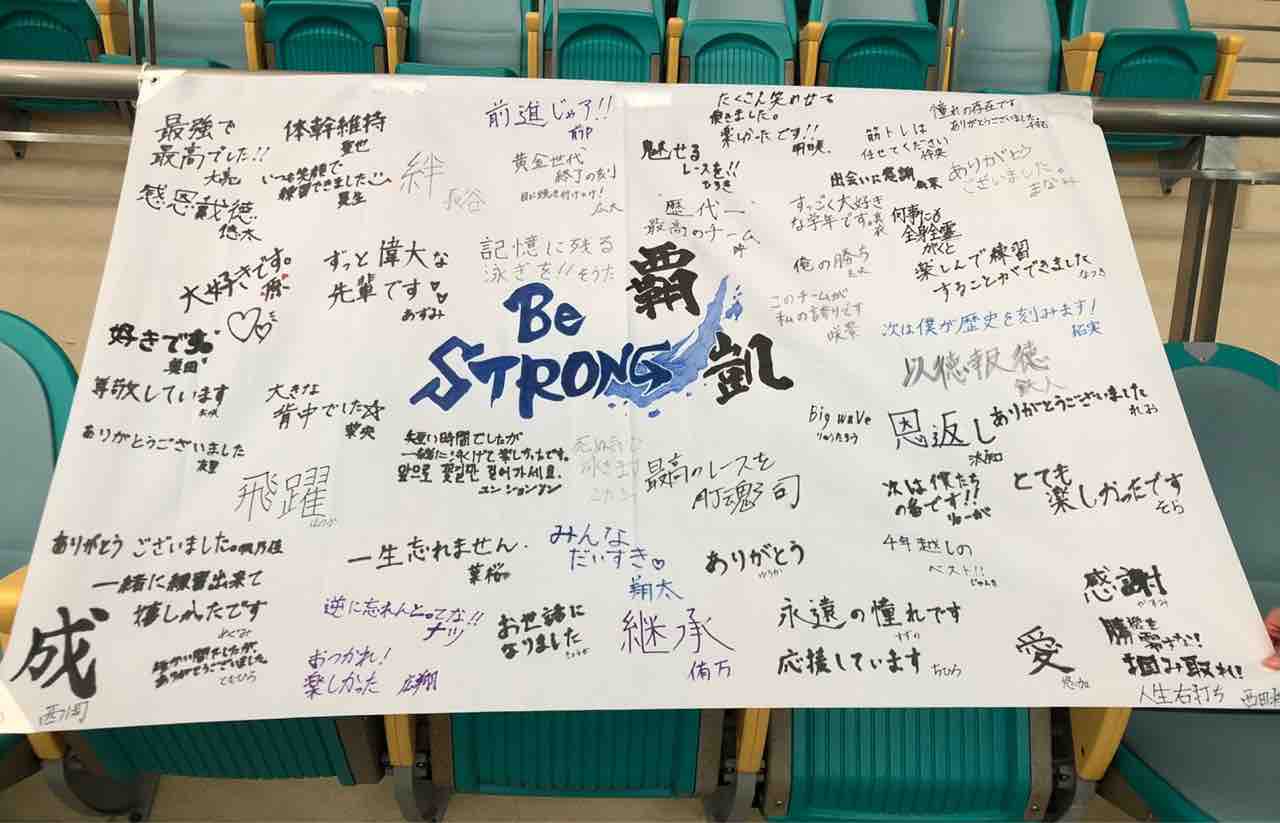 最強で
最高でした!!
体幹維持
いつも笑顔で
練習できました
絆
前進じゃア!!
黄金世代
終了の刻
目に焼き付けろ!
広大
たくさん笑わせて
頂きました。
楽しかったです!!
魅せる
レースを!!
ひろき
筋トレは
任せてください
憧れの存在です
ありがとうございました
出会いに感謝
ありがとう
ございました。
まなみ
感恩戴徳
悠太
大好きです。
ずっと偉大な
先輩です♡
あずみ
記憶に残る
泳ぎを!!そうた
歴代一、
最高のチーム
すっごく大好き
な学年です。
何事にも
全身全霊
がくと
俺の勝ち
楽しんで練習
することができました
なつき
覇
凱
Be
STRONG
このチームが
私の誇りです
咲希
次は僕が歴史を刻みます!
拓実
好きです
奥田
尊敬しています
大きな
背中でした☆
葉央
以徳報徳
鉄人
ありがとうございました
短い時間でしたが
一緒に泳げて楽しかったです。
앞으로 꽃길만 걸어가세요.
ユンションジン
泳ぎます
最高のレースを
Big wave
りゅうたろう
恩返し
ありがとうございました
れよう
飛躍
はるか
次は僕たち
の番です!!
りゅーが
とても
楽しかったです
そら
ありがとう ございました。
一生忘れません.
葉桜
みんな
だいすき♡
翔太
ありがとう
ゆうか
4年越しの
ベスト!!
じゅんた
一緒に練習出来て
嬉しかったです
めぐみ
短い間でしたが、
ありがとうございました
ともひろ
成
西川町
逆に忘れんとってな!!
ナツ
おつかれ!
楽しかった 広翔
お世話に
なりました
継承
侑万
永遠の憧れです
すずの
応援しています
ちひろ
愛
悠加
感謝
かすみ
掴み取れ!
人生右打ち